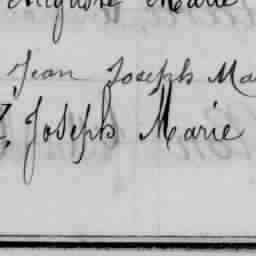 Marie
Jean Joseph Ma
Joseph Marie